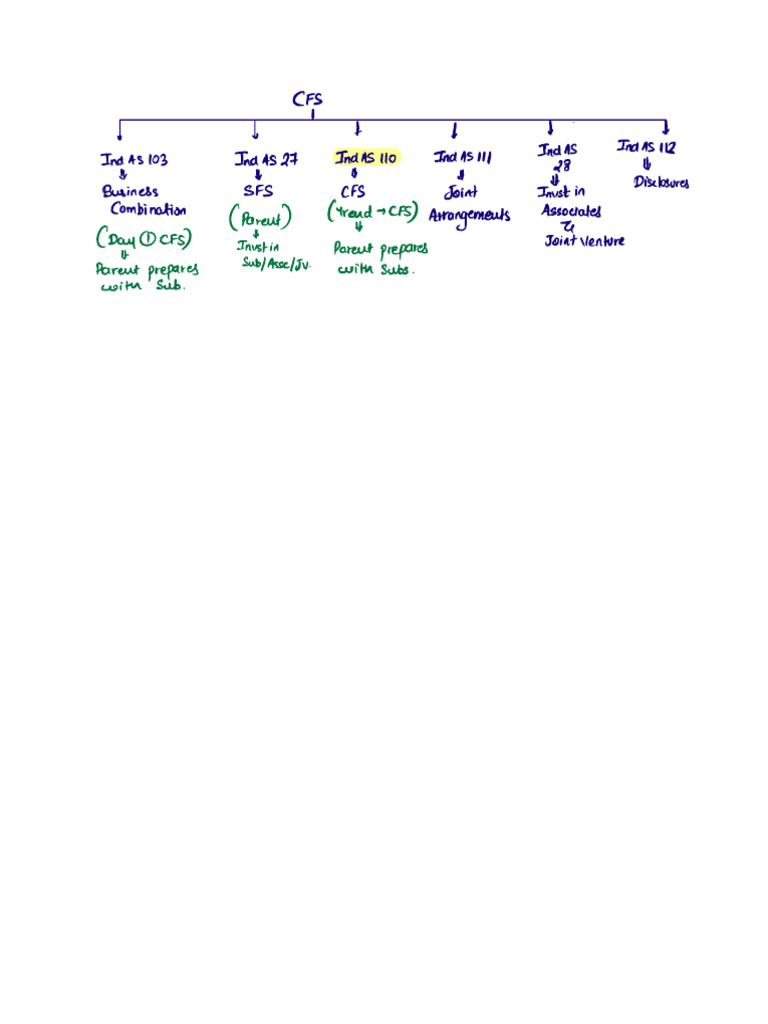 CFS
Ind AS 103
Business
Combination
(Day ① CFS)
Parent prepares
with Sub.
Ind AS 27
SFS
(Parent)
Invst in
Sub/Asso/Jv.
Ind AS 110
CFS
(Yrend → CFS)
Parent prepares
with Subs.
Ind AS 111
Joint
Arrangements
Ind AS
28
Invst in
Associates
&
Joint Venture
Ind AS 112
Disclosures